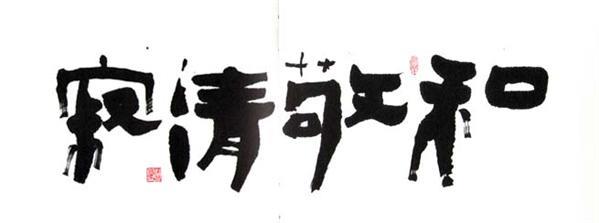 和敬清寂